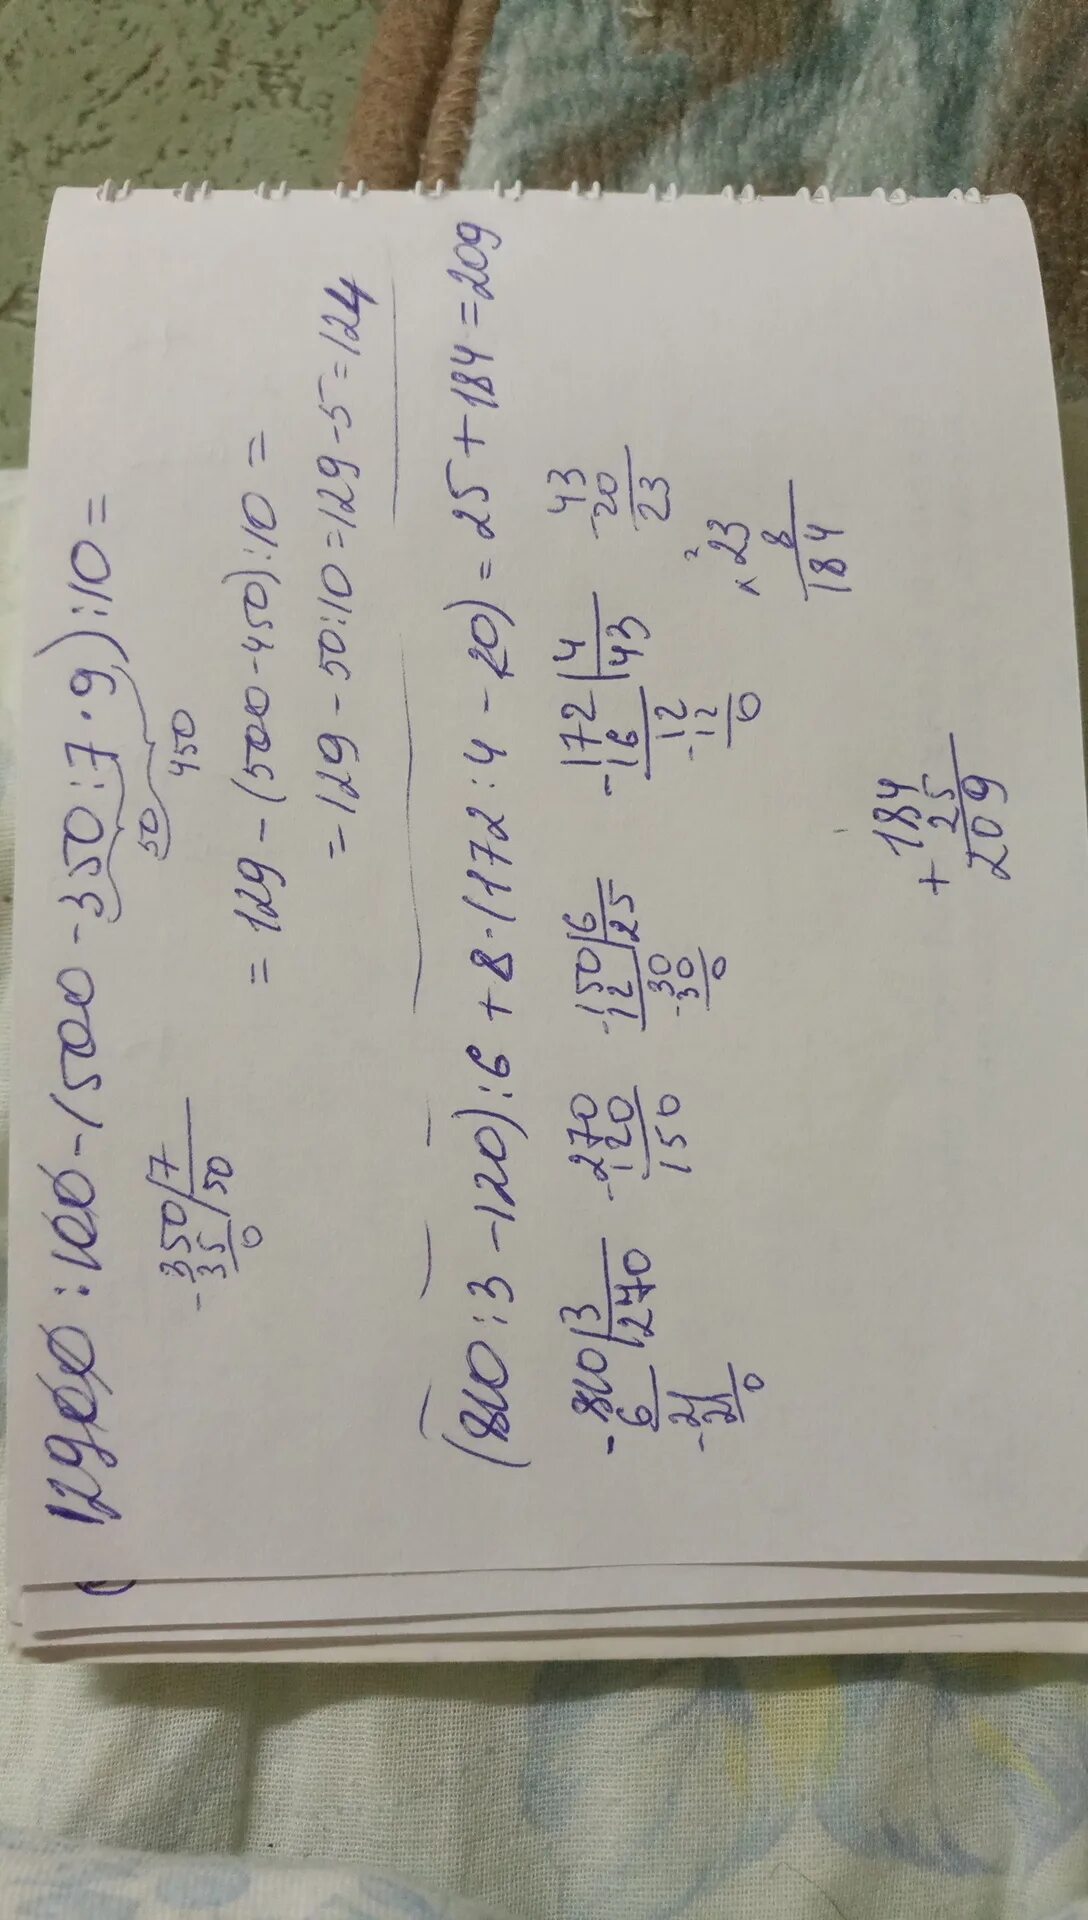 12900:100-(500-350:7·9):10=
50
450
-350|7
35 50
0
=129-(500-450):10=
=129-50:10=129-5=124
(810:3-120):6+8·(172:4-20)=25+184=209
-810|3
6 270
-21
21
0
-270
120
150
-150|6
12 25
-30
30
0
-172|4
16 43
-12
12
0
-43
20
23
2
×23
8
184
+184
25
209